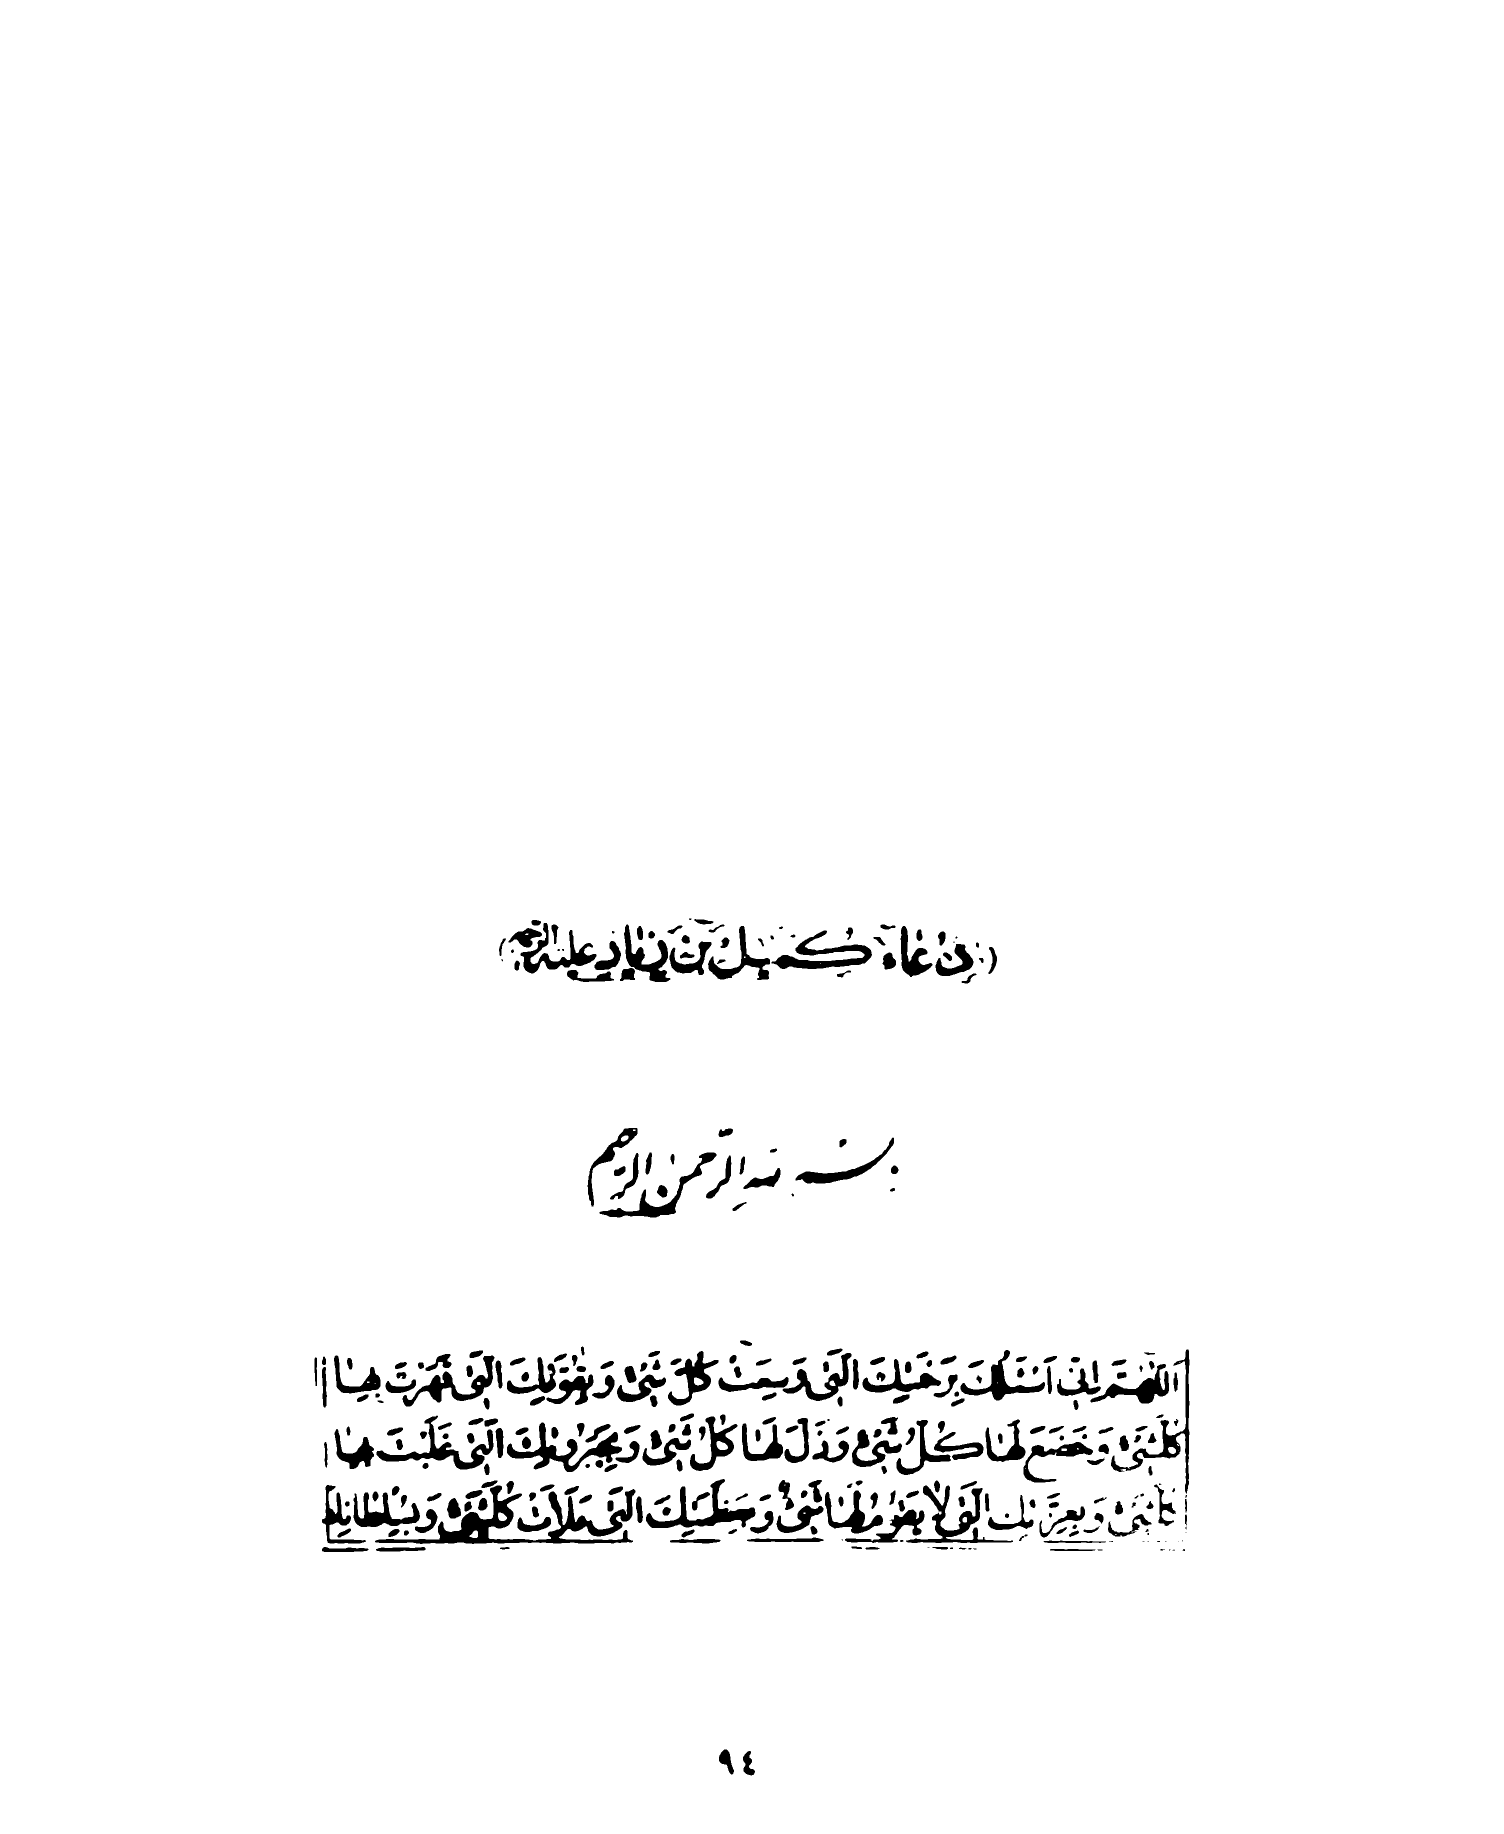 (دُعَاءُ كُمَيْلِ بْنِ زِيَادٍ عَلَيْهِ الرَّحمَةُ)
بسم الله الرّحمن الرّحيم
اَللّٰهُمَّ اِنّى اَسْئَلُكَ بِرَحْمَتِكَ الَّتى وَسِعَتْ كُلَّ شَىْءٍ وَ بِقُوَّتِكَ الَّتى قَهَرْتَ بِهٰا
كُلَّشَىْءٍ وَ خَضَعَ لَهٰا كُلُّ شَىْءٍ وَ ذَلَّ لَهٰا كُلُّ شَىْءٍ وَ بِجَبَرُوتِكَ الَّتى غَلَبْتَ بِهٰا
كُلَّشَىْءٍ وَ بِعِزَّتِكَ الَّتى لٰا يَقُومُ لَهٰا شَىْءٌ وَ بِعَظَمَتِكَ الَّتى مَلَأَتْ كُلَّشَىْءٍ وَ بِسُلْطٰانِكَ
٩٤